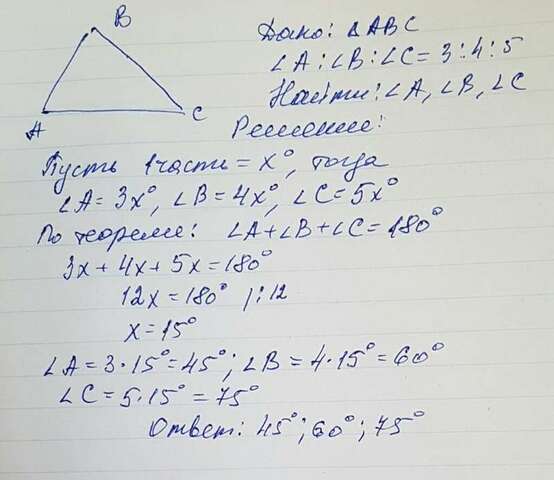 B
A
C
Дано: ΔABC
∠A:∠B:∠C=3:4:5
Найти: ∠A, ∠B, ∠C
Решение:
Пусть 1 часть = x°, тогда
∠A=3x°, ∠B=4x°, ∠C=5x°
По теореме: ∠A+∠B+∠C=180°
3x+4x+5x=180°
12x=180° |:12
x=15°
∠A=3·15°=45°; ∠B=4·15°=60°
∠C=5·15°=75°
Ответ: 45°; 60°; 75°